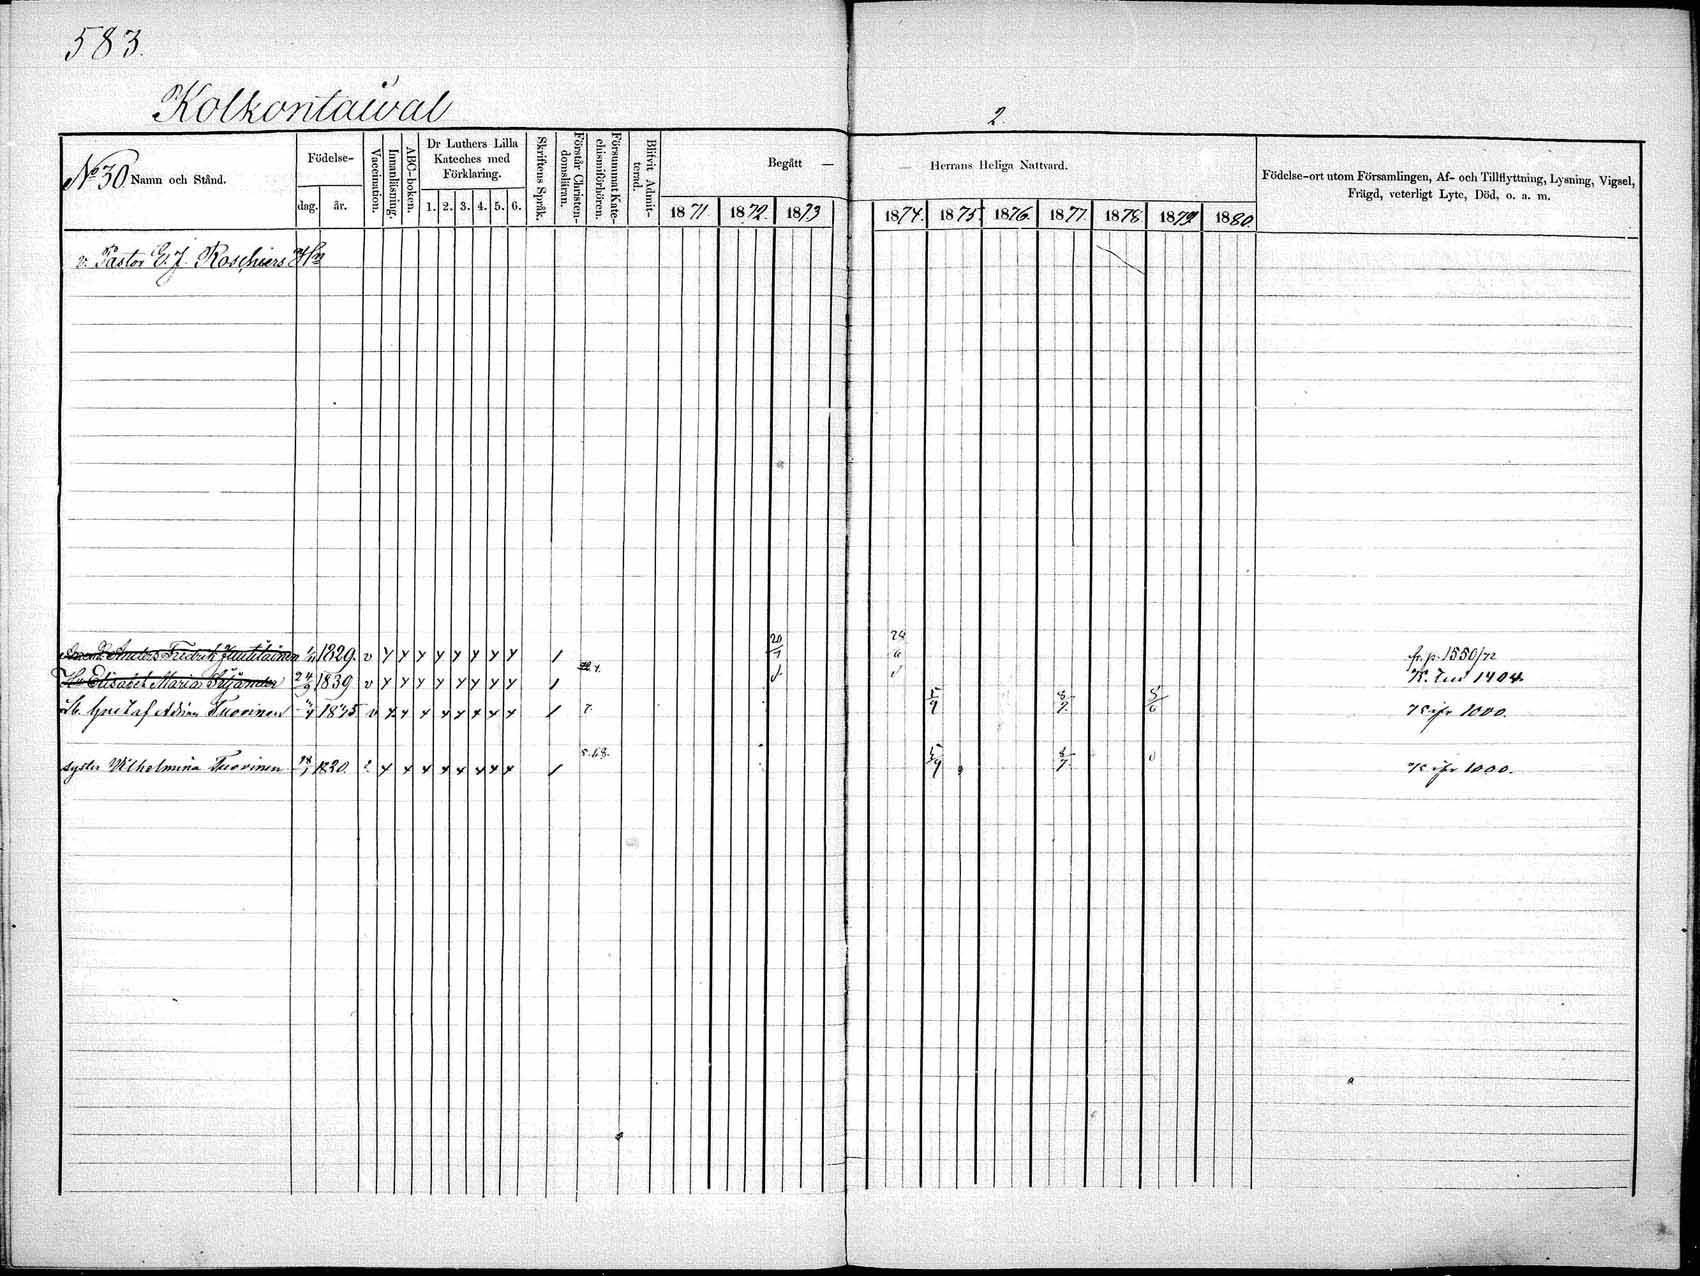 583.
Kolkontaival
2.
No 30 Namn och Stånd.
Födelse-
dag. år.
Vaccination.
Innanläsning.
ABC-boken.
Dr Luthers Lilla
Kateches med
Förklaring.
1. 2. 3. 4. 5. 6.
Skriftens Språk.
Förstår Christen-
domsläran.
Försummat Kate-
chismiförhören.
Blifvit Admit-
terad.
Begått — — Herrans Heliga Nattvard.
1871 1872. 1873 1874. 1875. 1876. 1877. 1878 1879 1880.
Födelse-ort utom Församlingen, Af- och Tillflyttning, Lysning, Vigsel,
Frägd, veterligt Lyte, Död, o. a. m.
v. Pastor E. J. Roschiers
Anders Fredrik Juutilainen 1829. v fr. p. 1550/72
Hu Elisabet Maria 24/9 1839 v 1404.
Gustaf Adrian Tuovinen 1845 v 7. 5/9 8/7 5/6 1000.
syster Vilhelmina Tuovinen 1820. 5/9 8/7 1000.